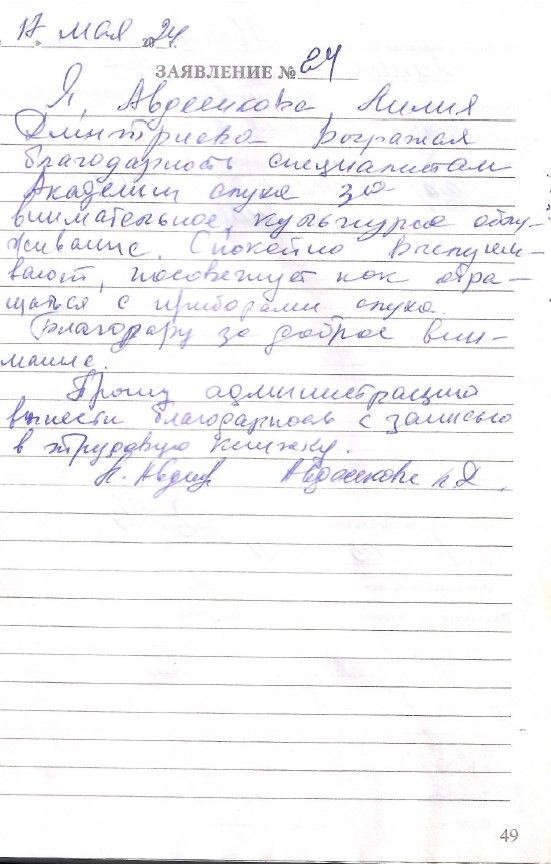 17 мая 2024 г.
ЗАЯВЛЕНИЕ № 24
Я, Авдеенкова Лилия
Дмитриевна выражая
благодарность специалистам
Академии слуха за
внимательное, культурное обслу-
живание. Спокойно выслуши-
вают, посоветуют как обра-
щаться с приборами слуха.
Благодарю за доброе вни-
мание.
Прошу администрацию
вынести благодарность с записью
в трудовую книжку.
Авдеенкова Л Д.
49